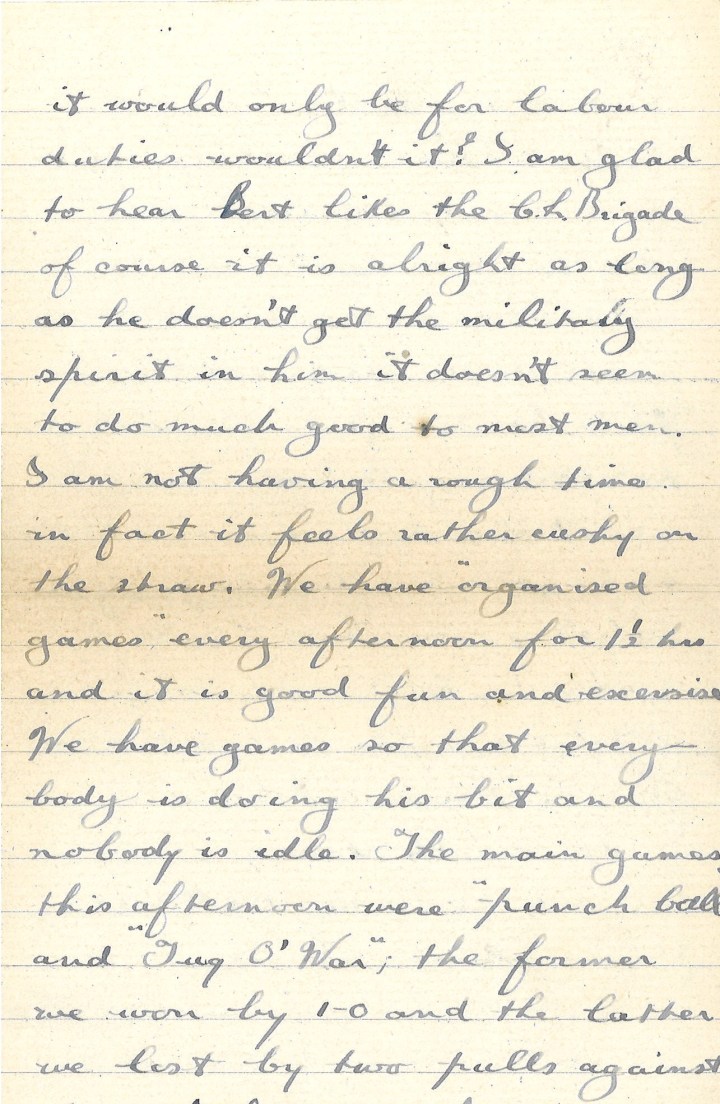 it would only be for labour
duties wouldn't it? I am glad
to hear Bert likes the C.L. Brigade
of course it is alright as long
as he doesn't get the military
spirit in him it doesn't seem
to do much good to most men.
I am not having a rough time
in fact it feels rather cushy on
the straw. We have "organised
games" every afternoon for 1½ hrs
and it is good fun and exersise
We have games so that every-
body is doing his bit and
nobody is idle. The main games
this afternoon were "punch ball
and "Tug O' War"; the former
we won by 1-0 and the latter
we lost by two pulls against